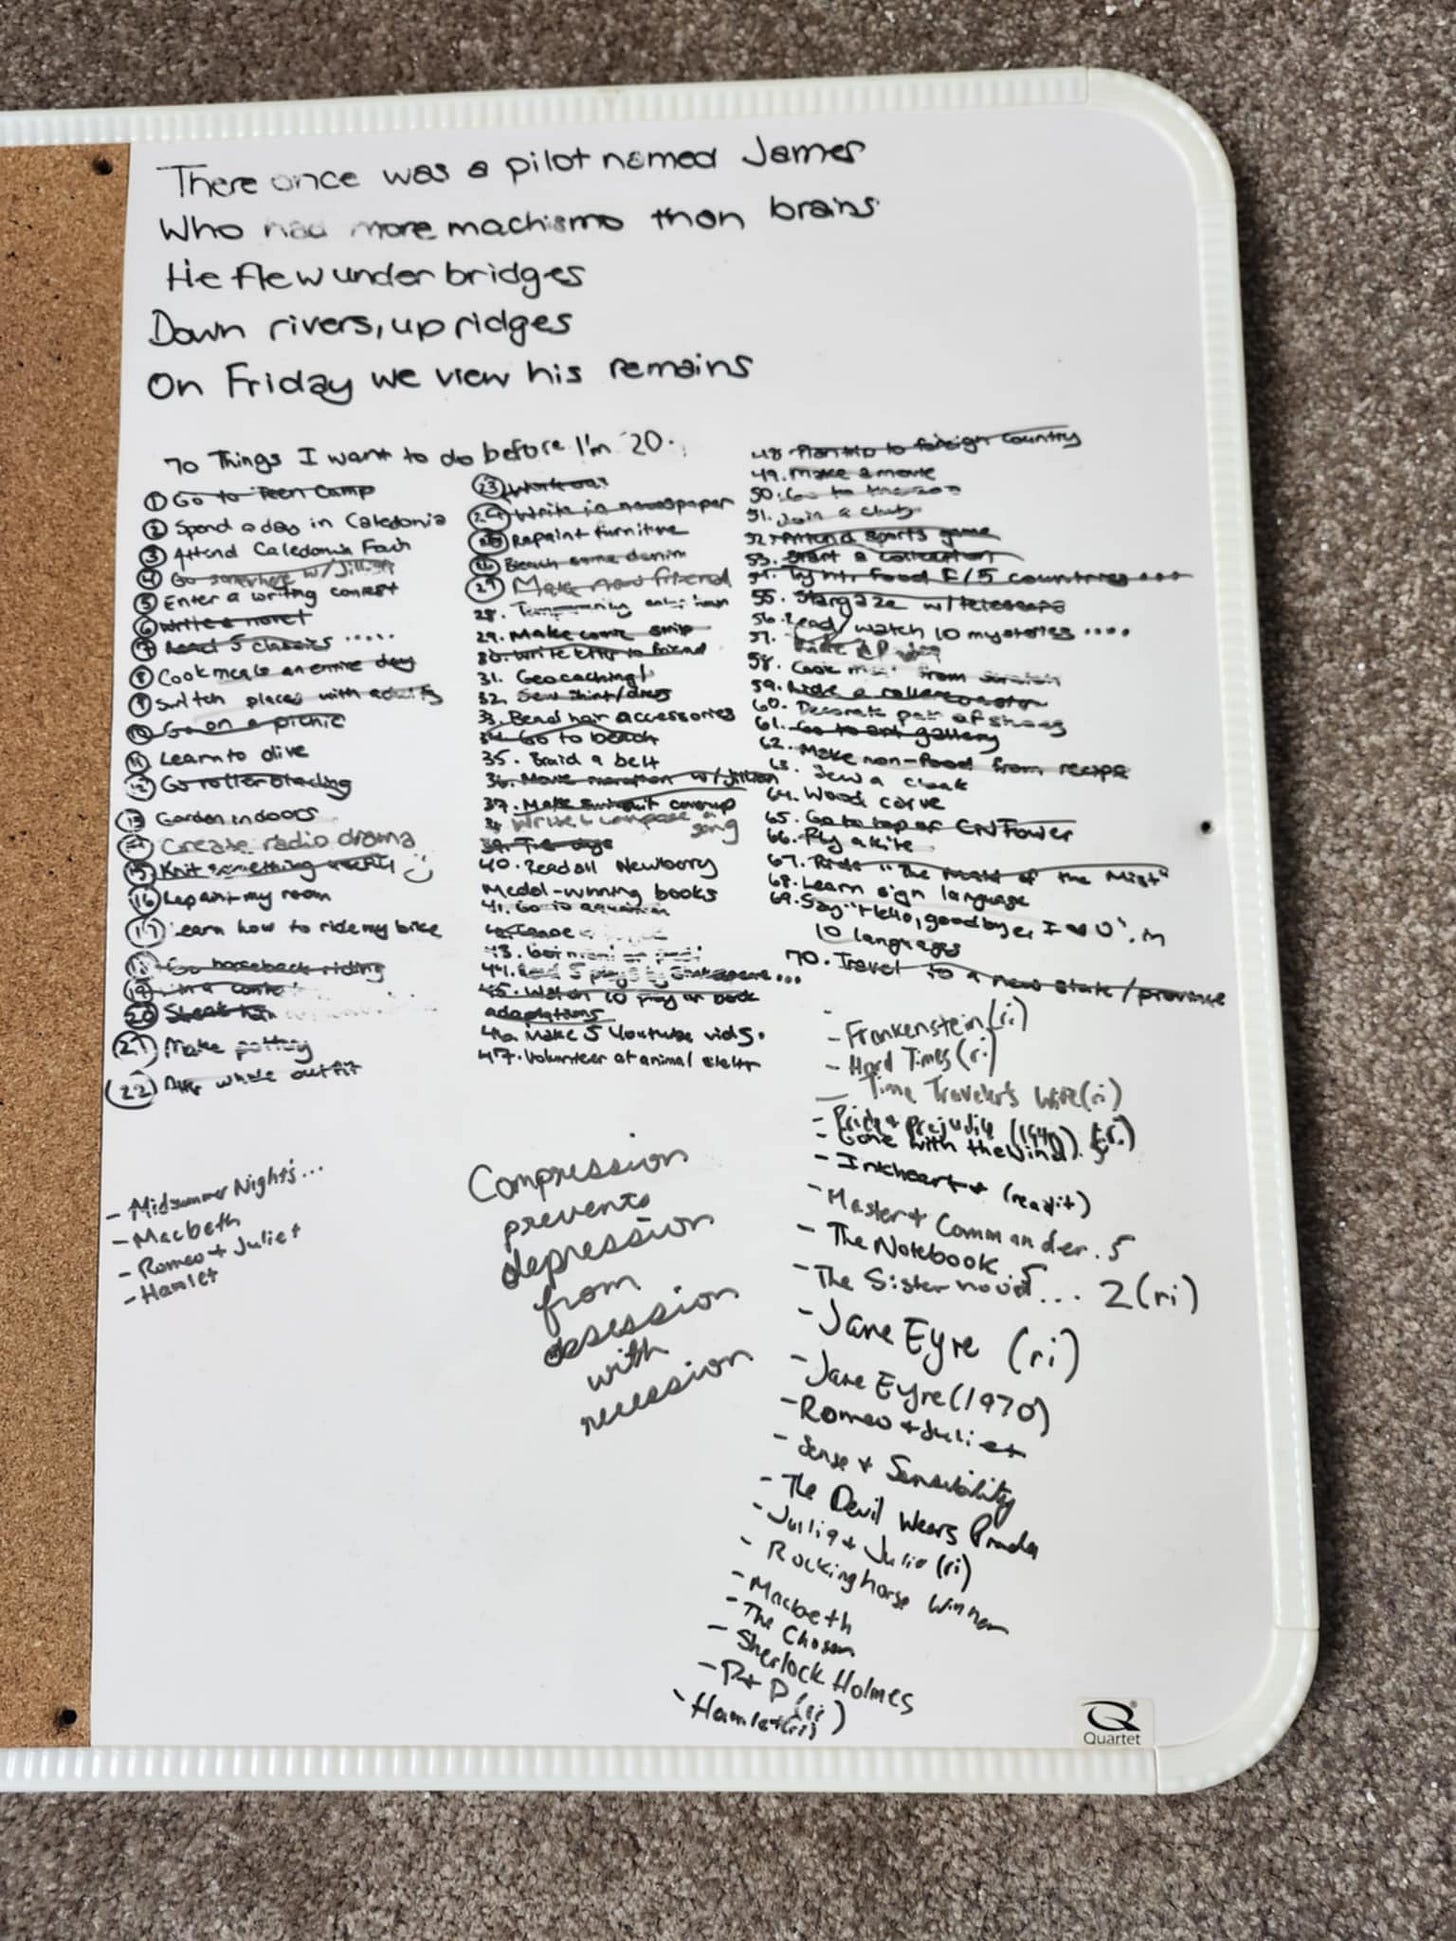 There once was a pilot named James
Who had more machismo than brains
He flew under bridges
Down rivers, up ridges
On Friday we view his remains
70 Things I want to do before I'm 20.
1 Go to Teen Camp
2 Spend a day in Caledonia
3 Attend Caledonia Fair
4 Go somewhere w/ Jillian
5 Enter a writing contest
6 Write a novel
7 Read 5 classics .....
8 Cook meals an entire day
9 Switch places with
10 Go on a picnic
11 Learn to dive
12 Go roller blading
13 Garden indoors
14 Create radio drama
15 Knit something
16 Repaint my room
17 Learn how to ride my bike
18 Go horseback riding
19 in a
20
21 Make pottery
22 whole outfit
23 Work out
24 Write in newspaper
25 Repaint furniture
26 Bleach some denim
27 Make new friend
28. Temporary
29. Make comic strip
30. Write letter to friend
31. Geocaching!
32. Sew shirt/dress
33. Bead hair accessories
34. Go to beach
35. Braid a belt
36. Movie marathon w/ Jillian
37. Make swimsuit coverup
38. Write & compose a
song
39. Tie dye
40. Read all Newberry
Medal-winning books
41. Go to aquarium
42. Canoe
43.
44. Read 5 plays by Shakespeare ...
45. Watch 10 play or book
adaptations
46. Make 5 Youtube vids.
47. Volunteer at animal shelter
48. Plan trip to foreign country
49. Make a movie
50. Go to the zoo
51. Join a club
52. Attend sports game
53. Start a collection
54. Try food F/5 countries ...
55. Stargaze w/ telescope
56. Read/watch 10 mysteries ....
57.
58. Cook from scratch
59. Ride a rollercoaster
60. Decorate pair of shoes
61. Go to art gallery
62. Make non-food from recipe
63. Sew a cloak
64. Wood carve
65. Go to top of CN Tower
66. Fly a kite
67. Ride "The Maid of the Mist"
68. Learn sign language
69. Say "Hello, goodbye, I ♥ U". in
10 languages
70. Travel to a new state/province
- Frankenstein (ri)
- Hard Times (ri)
- Time Traveler's Wife (ri)
- Pride & prejudice (1940)
- Gone with the Wind. 5
- Inkheart (read it)
- Master & Commander. 5
- The Notebook 5
- The Sister novel ... 2 (ri)
- Jane Eyre (ri)
- Jane Eyre (1970)
- Romeo & Juliet
- Sense & Sensibility
- The Devil Wears Prada
- Jullia & Julie (ri)
- Rockinghorse Winner
- Macbeth
- The Chosen
- Sherlock Holmes
- P & P (ri)
- Hamlet (ri)
- Midsummer Night's...
- Macbeth
- Romeo & Juliet
- Hamlet
Compression
prevents
depression
from
obsession
with
recession
Quartet